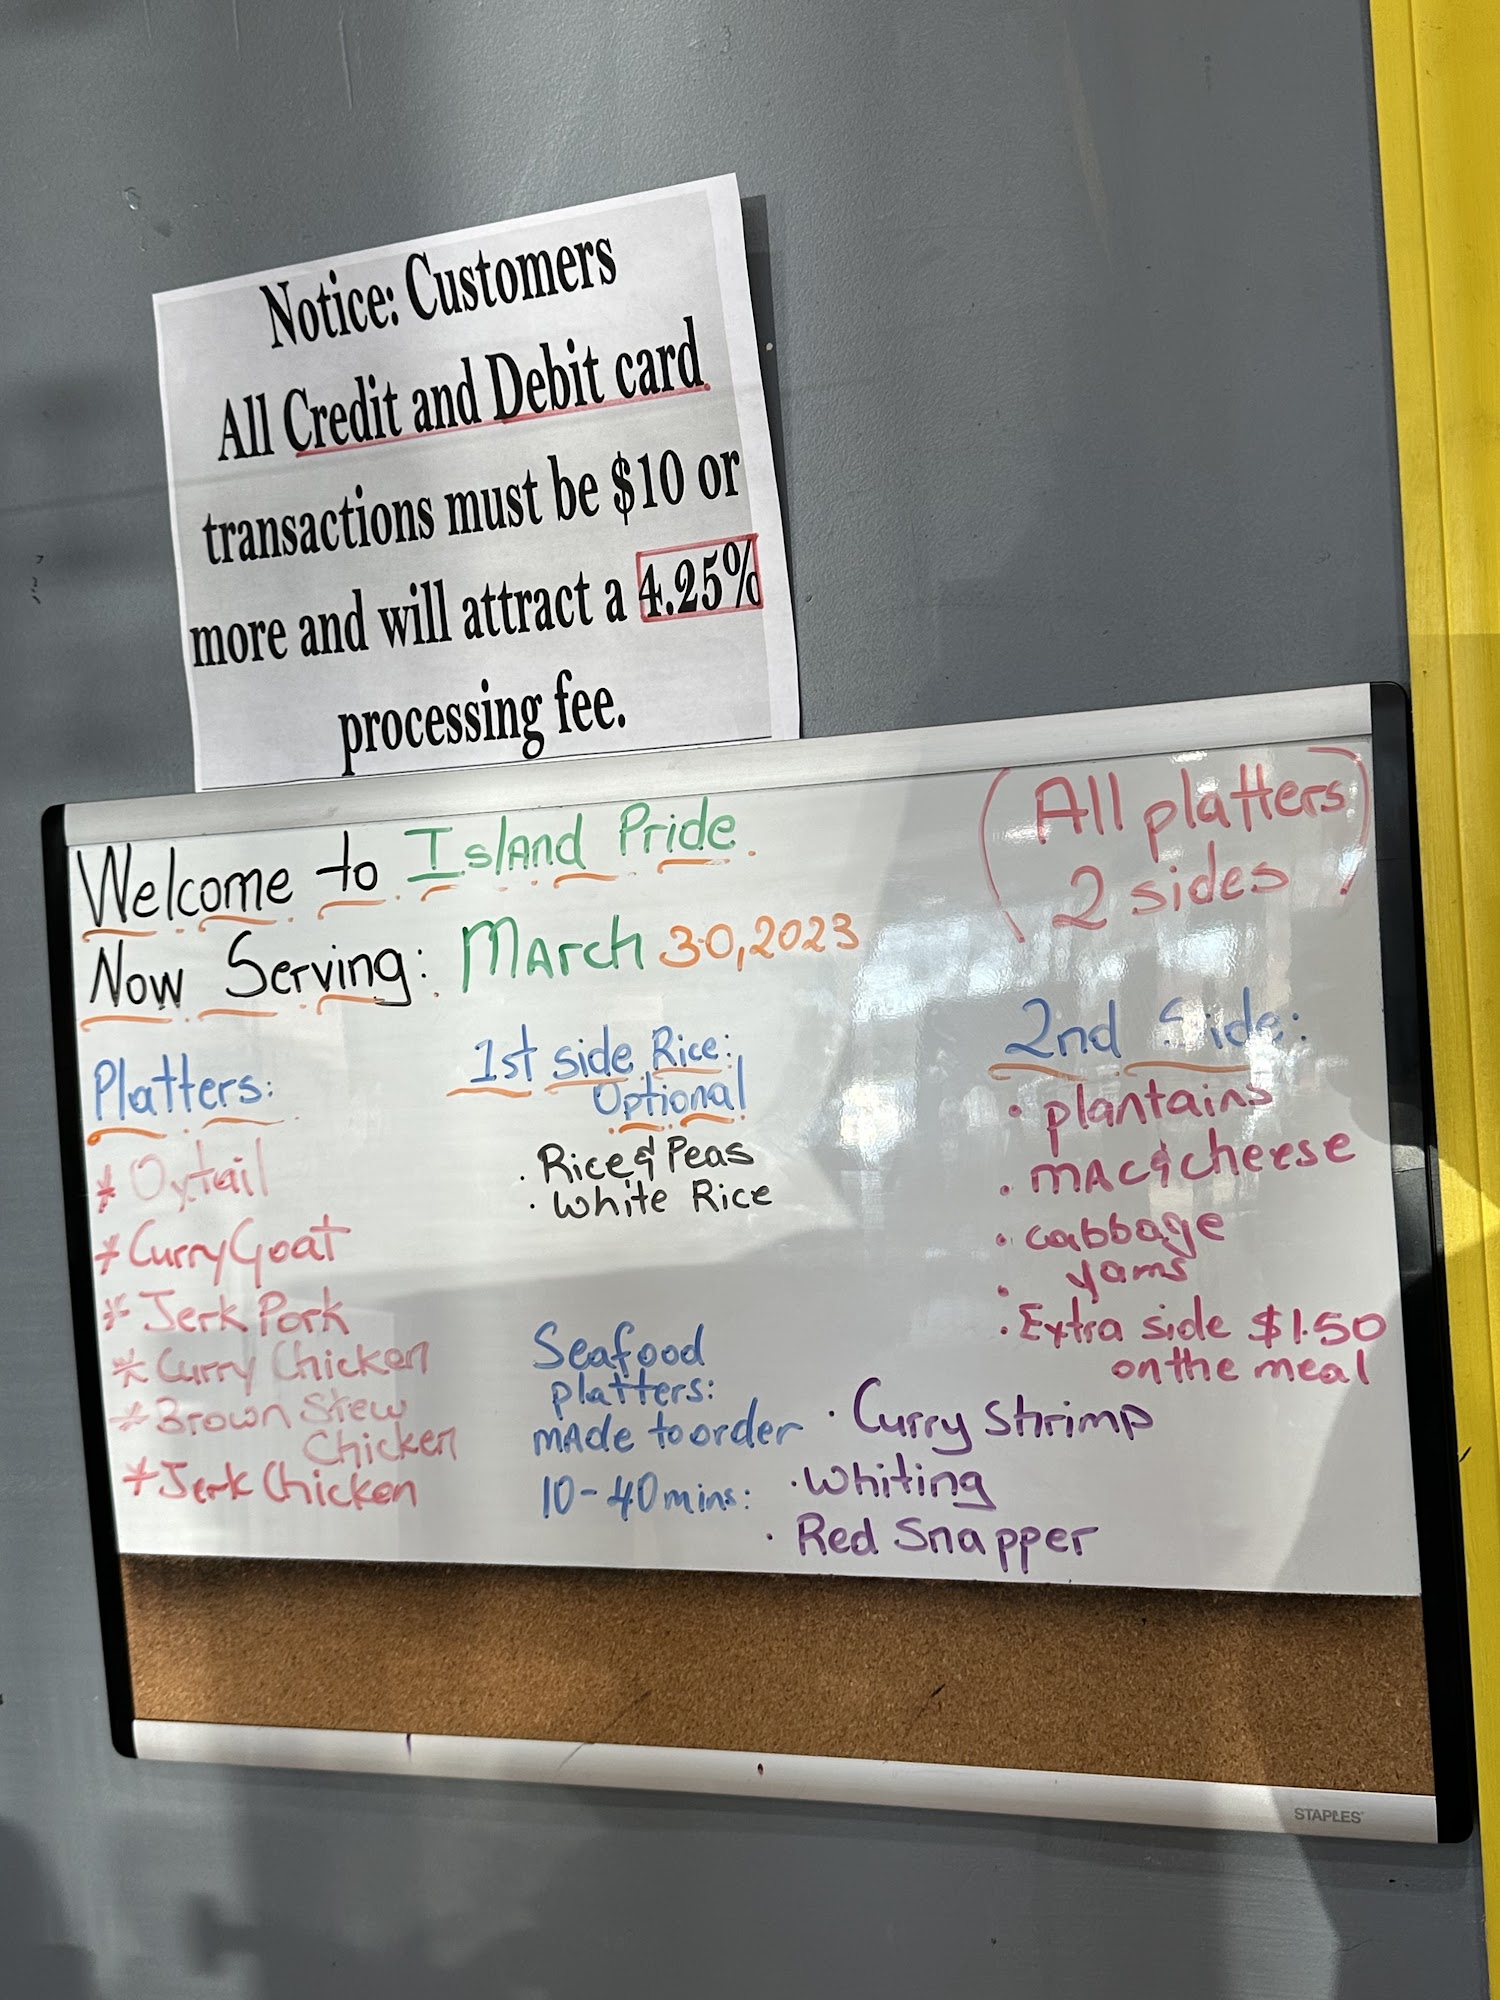 Notice: Customers
All Credit and Debit card
transactions must be $10 or
more and will attract a 4.25%
processing fee.
Welcome to Island Pride.
Now Serving: March 30, 2023
(All platters
2 sides)
Platters:
* Oxtail
* Curry Goat
* Jerk Pork
* Curry Chicken
* Brown Stew
Chicken
* Jerk Chicken
1st side Rice:
Optional
· Rice & Peas
· White Rice
2nd Side:
· plantains
· mac & cheese
· cabbage
· yams
· Extra side $1.50
on the meal
Seafood
platters:
made to order
10-40 mins:
· Curry Shrimp
· Whiting
· Red Snapper
STAPLES